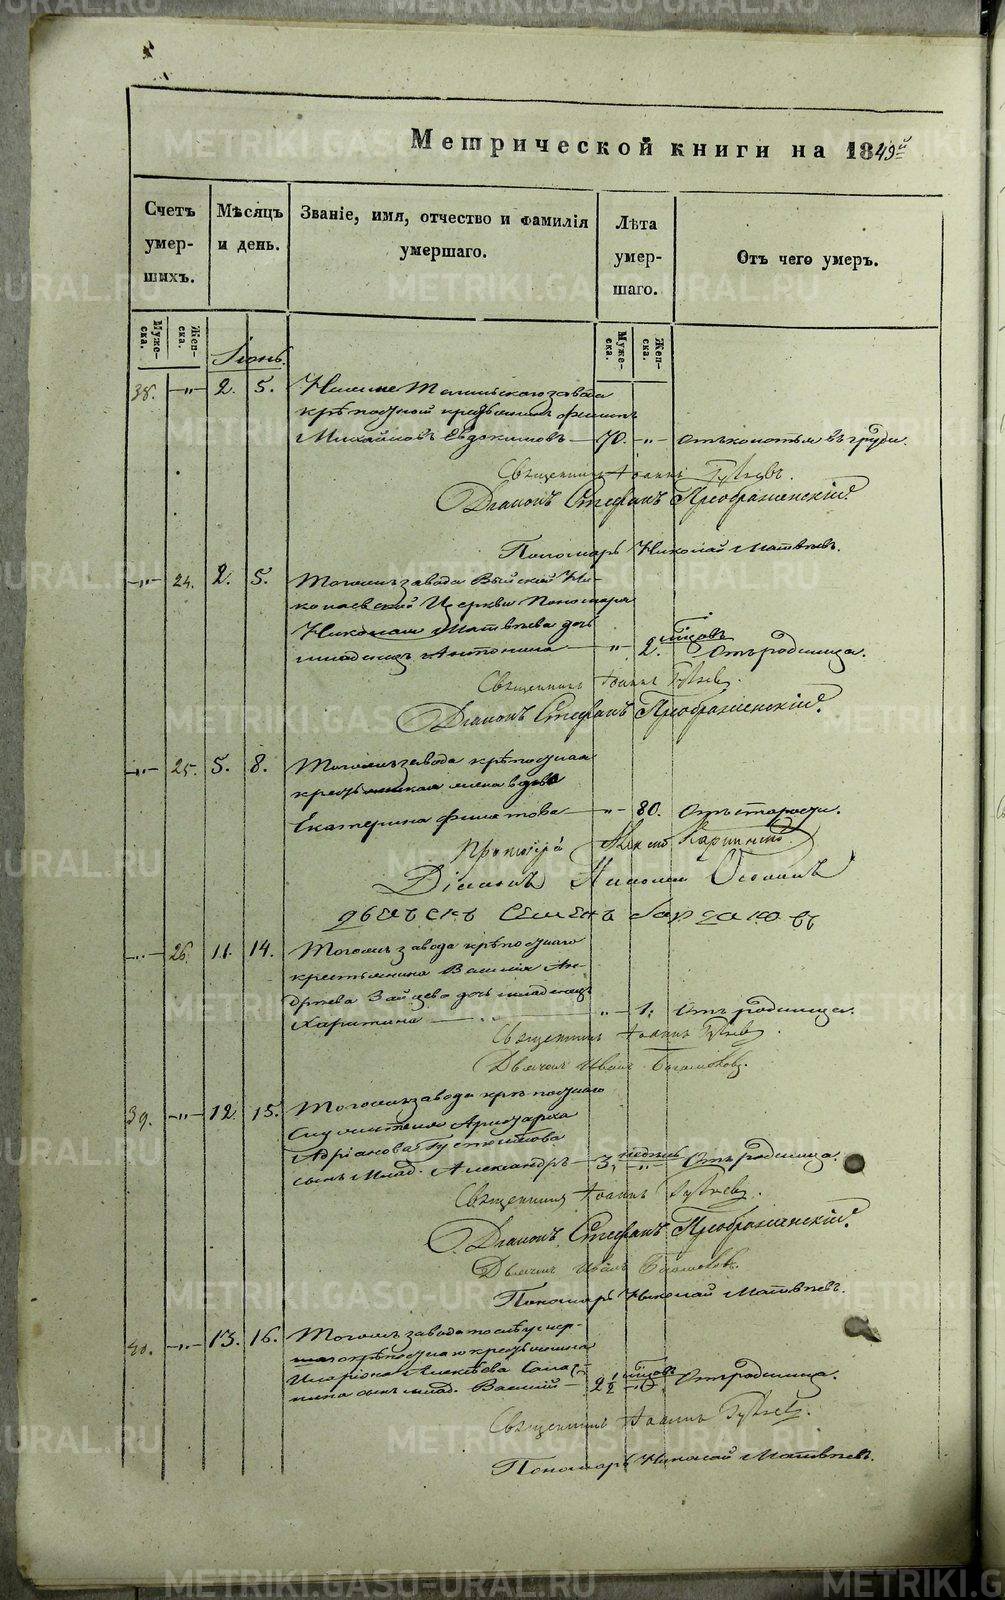 Метрической книги на 1849й
Счетъ умер- шихъ.
Мѣсяцъ и день.
Званіе, имя, отчество и фамилія умершаго.
Лѣта умер- шаго.
Отъ чего умеръ.
Муже- ска.
Жен- ска.
Муже- ска.
Жен- ска.
Іюнь.
38. —"— 2. 5. Нижне Тагильскаго завода
крѣпостной крестьянинъ Филипъ
Михайловъ Евдокимовъ — 70. —"— отъ колотья въ груди.
Священникъ Іоаннъ
Діаконъ Стефанъ Преображенскій.
Пономарь Николай Матвѣевъ.
—"— 24. 2. 5. Тогожъ завода Выйской Ни-
колаевской Церкви Пономаря
Николая Матвѣева дочь
младенецъ Антонина — " — 2. мѣсяцовъ Отъ родимца.
Священникъ Іоаннъ
Діаконъ Стефанъ Преображенскій.
—"— 25. 5. 8. Тогожъ завода крѣпостная
крестьянская жена вдова
Екатерина Филатова — " — 80. Отъ старости.
Протоіерей Карпинскій
Діаконъ Николай
Семенъ
—"— 26. 11. 14. Тогожъ завода крѣпостнаго
крестьянина Василія Ан-
дрѣева Зайцева дочь младенецъ
Харитина — " — 1. Отъ родимца.
Священникъ Іоаннъ
Дьячекъ Иванъ
39. —"— 12. 15. Тогожъ завода крѣпостнаго
Служителя Аристарха
Адріанова
сынъ млад. Александръ — 3. недѣль —"— Отъ родимца.
Священникъ Іоаннъ
Діаконъ Стефанъ Преображенскій.
Дьячекъ Иванъ
Пономарь Николай Матвѣевъ.
40. —"— 13. 16. Тогожъ завода
крестьянина
Иларіона Алексѣева
сынъ млад. Василій — 2 1/2 мѣсяцовъ Отъ родимца.
Священникъ Іоаннъ
Пономарь Николай Матвѣевъ.
METRIKI.GASO-URAL.RU